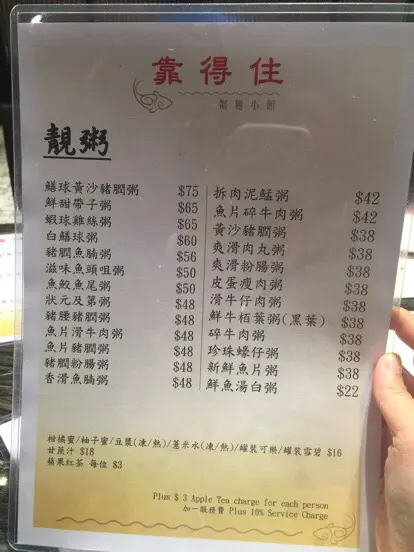 靠得住
粥麵小館
靚粥
鱔球黃沙豬膶粥 $75
鮮甜帶子粥 $65
蝦球雞絲粥 $65
白鱔球粥 $60
豬膶魚腩粥 $56
滋味魚頭咀粥 $50
魚鮫魚尾粥 $50
狀元及第粥 $48
豬腰豬膶粥 $48
魚片滑牛肉粥 $48
魚片豬膶粥 $48
豬膶粉腸粥 $48
香滑魚腩粥 $48
拆肉泥鯭粥 $42
魚片碎牛肉粥 $42
黃沙豬膶粥 $38
爽滑肉丸粥 $38
爽滑粉腸粥 $38
皮蛋瘦肉粥 $38
滑牛仔肉粥 $38
鮮牛栢葉粥(黑葉) $38
碎牛肉粥 $38
珍珠蠔仔粥 $38
新鮮魚片粥 $38
鮮魚湯白粥 $22
柑橘蜜/柚子蜜/豆漿(凍/熱)/薏米水(凍/熱)/罐裝可樂/罐裝雪碧 $16
甘蔗汁 $18
蘋果紅茶 每位 $3
Plus $ 3 Apple Tea charge for each person
加一服務費 Plus 10% Service Charge